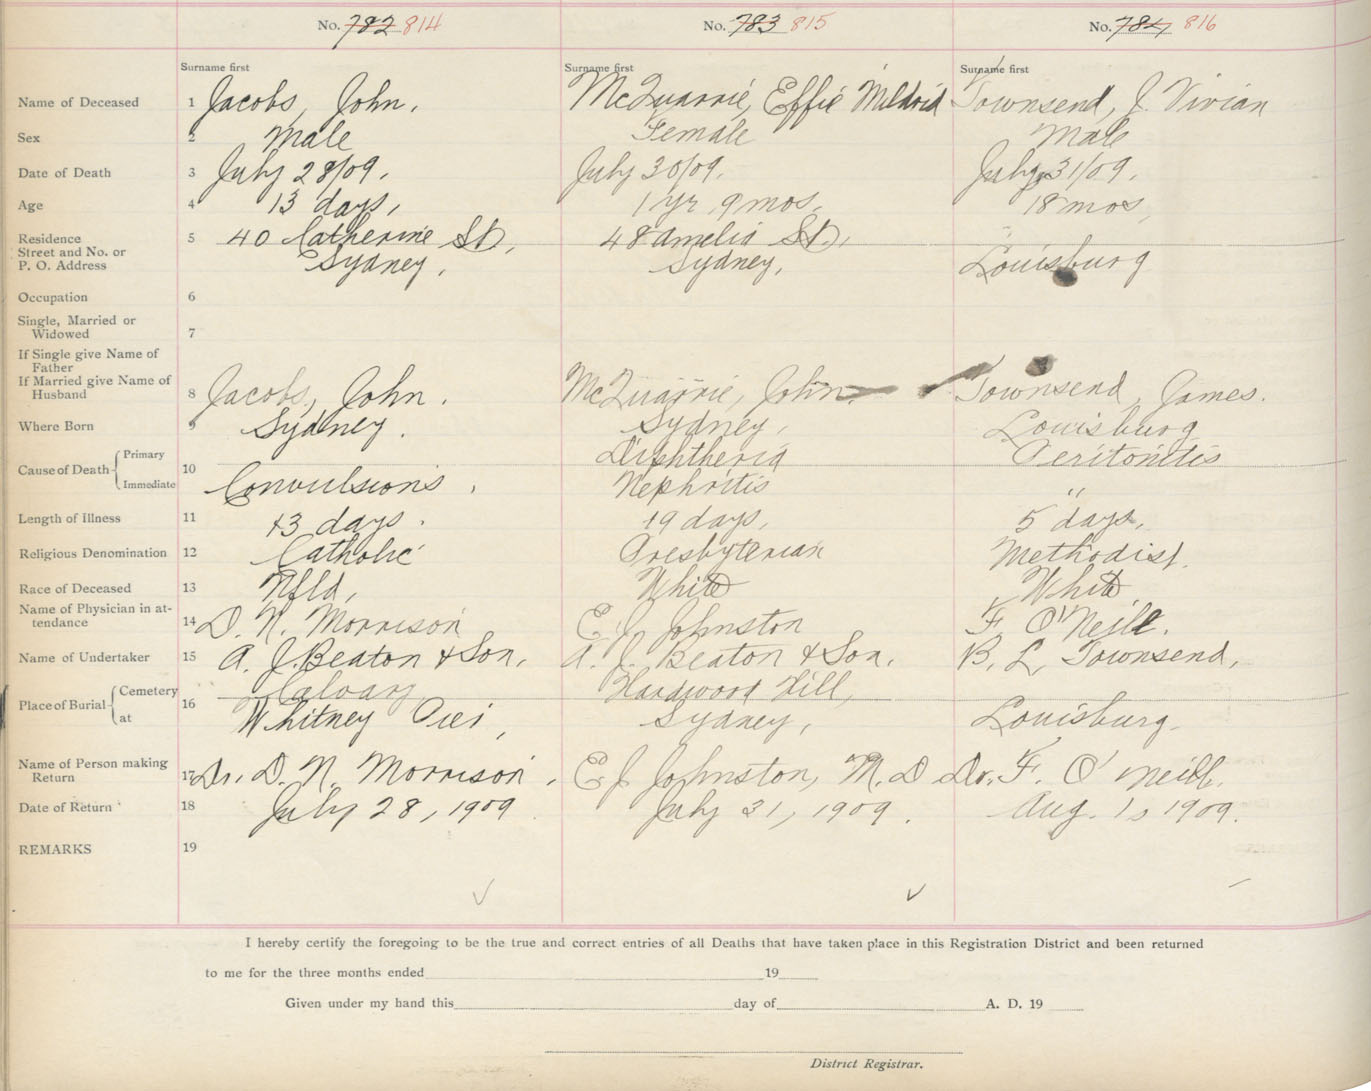 No. 782 814 No. 783 815 No. 784 816
Surname first Surname first Surname first
Name of Deceased 1 Jacobs, John. McQuarrie, Effie Mildrid Townsend, J. Vivian
Sex 2 Male Female Male
Date of Death 3 July 28/09. July 30/09. July 31/09.
Age 4 13 days, 1 yr 9 mos. 18 mos,
Residence 5 40 Catherine St, 48 Amelia St.,
Street and No. or
P. O. Address Sydney, Sydney, Louisburg
Occupation 6
Single, Married or
Widowed 7
If Single give Name of
Father
If Married give Name of
Husband 8 Jacobs, John. McQuarrie, John. Townsend, James.
Where Born 9 Sydney. Sydney, Louisburg
Cause of Death Primary 10 Diphtheria Peritonitis
Immediate Convulsions, Nephritis "
Length of Illness 11 13 days. 19 days, 5 days,
Religious Denomination 12 Catholic Presbyterian Methodist.
Race of Deceased 13 Nfld, White White
Name of Physician in at-
tendance 14 D. N. Morrison E. J. Johnston F. O'Neill.
Name of Undertaker 15 A. J. Beaton & Son. A. J. Beaton & Son. B. L. Townsend,
Place of Burial Cemetery 16 Calvary Hardwood Hill,
at Whitney Pier, Sydney, Louisburg.
Name of Person making
Return 17 Dr. D. N. Morrison. E J Johnston, M. D Dr. F. O'Neill.
Date of Return 18 July 28, 1909. July 31, 1909. Aug. 1, 1909.
REMARKS 19
I hereby certify the foregoing to be the true and correct entries of all Deaths that have taken place in this Registration District and been returned
to me for the three months ended 19
Given under my hand this day of A. D. 19
District Registrar.